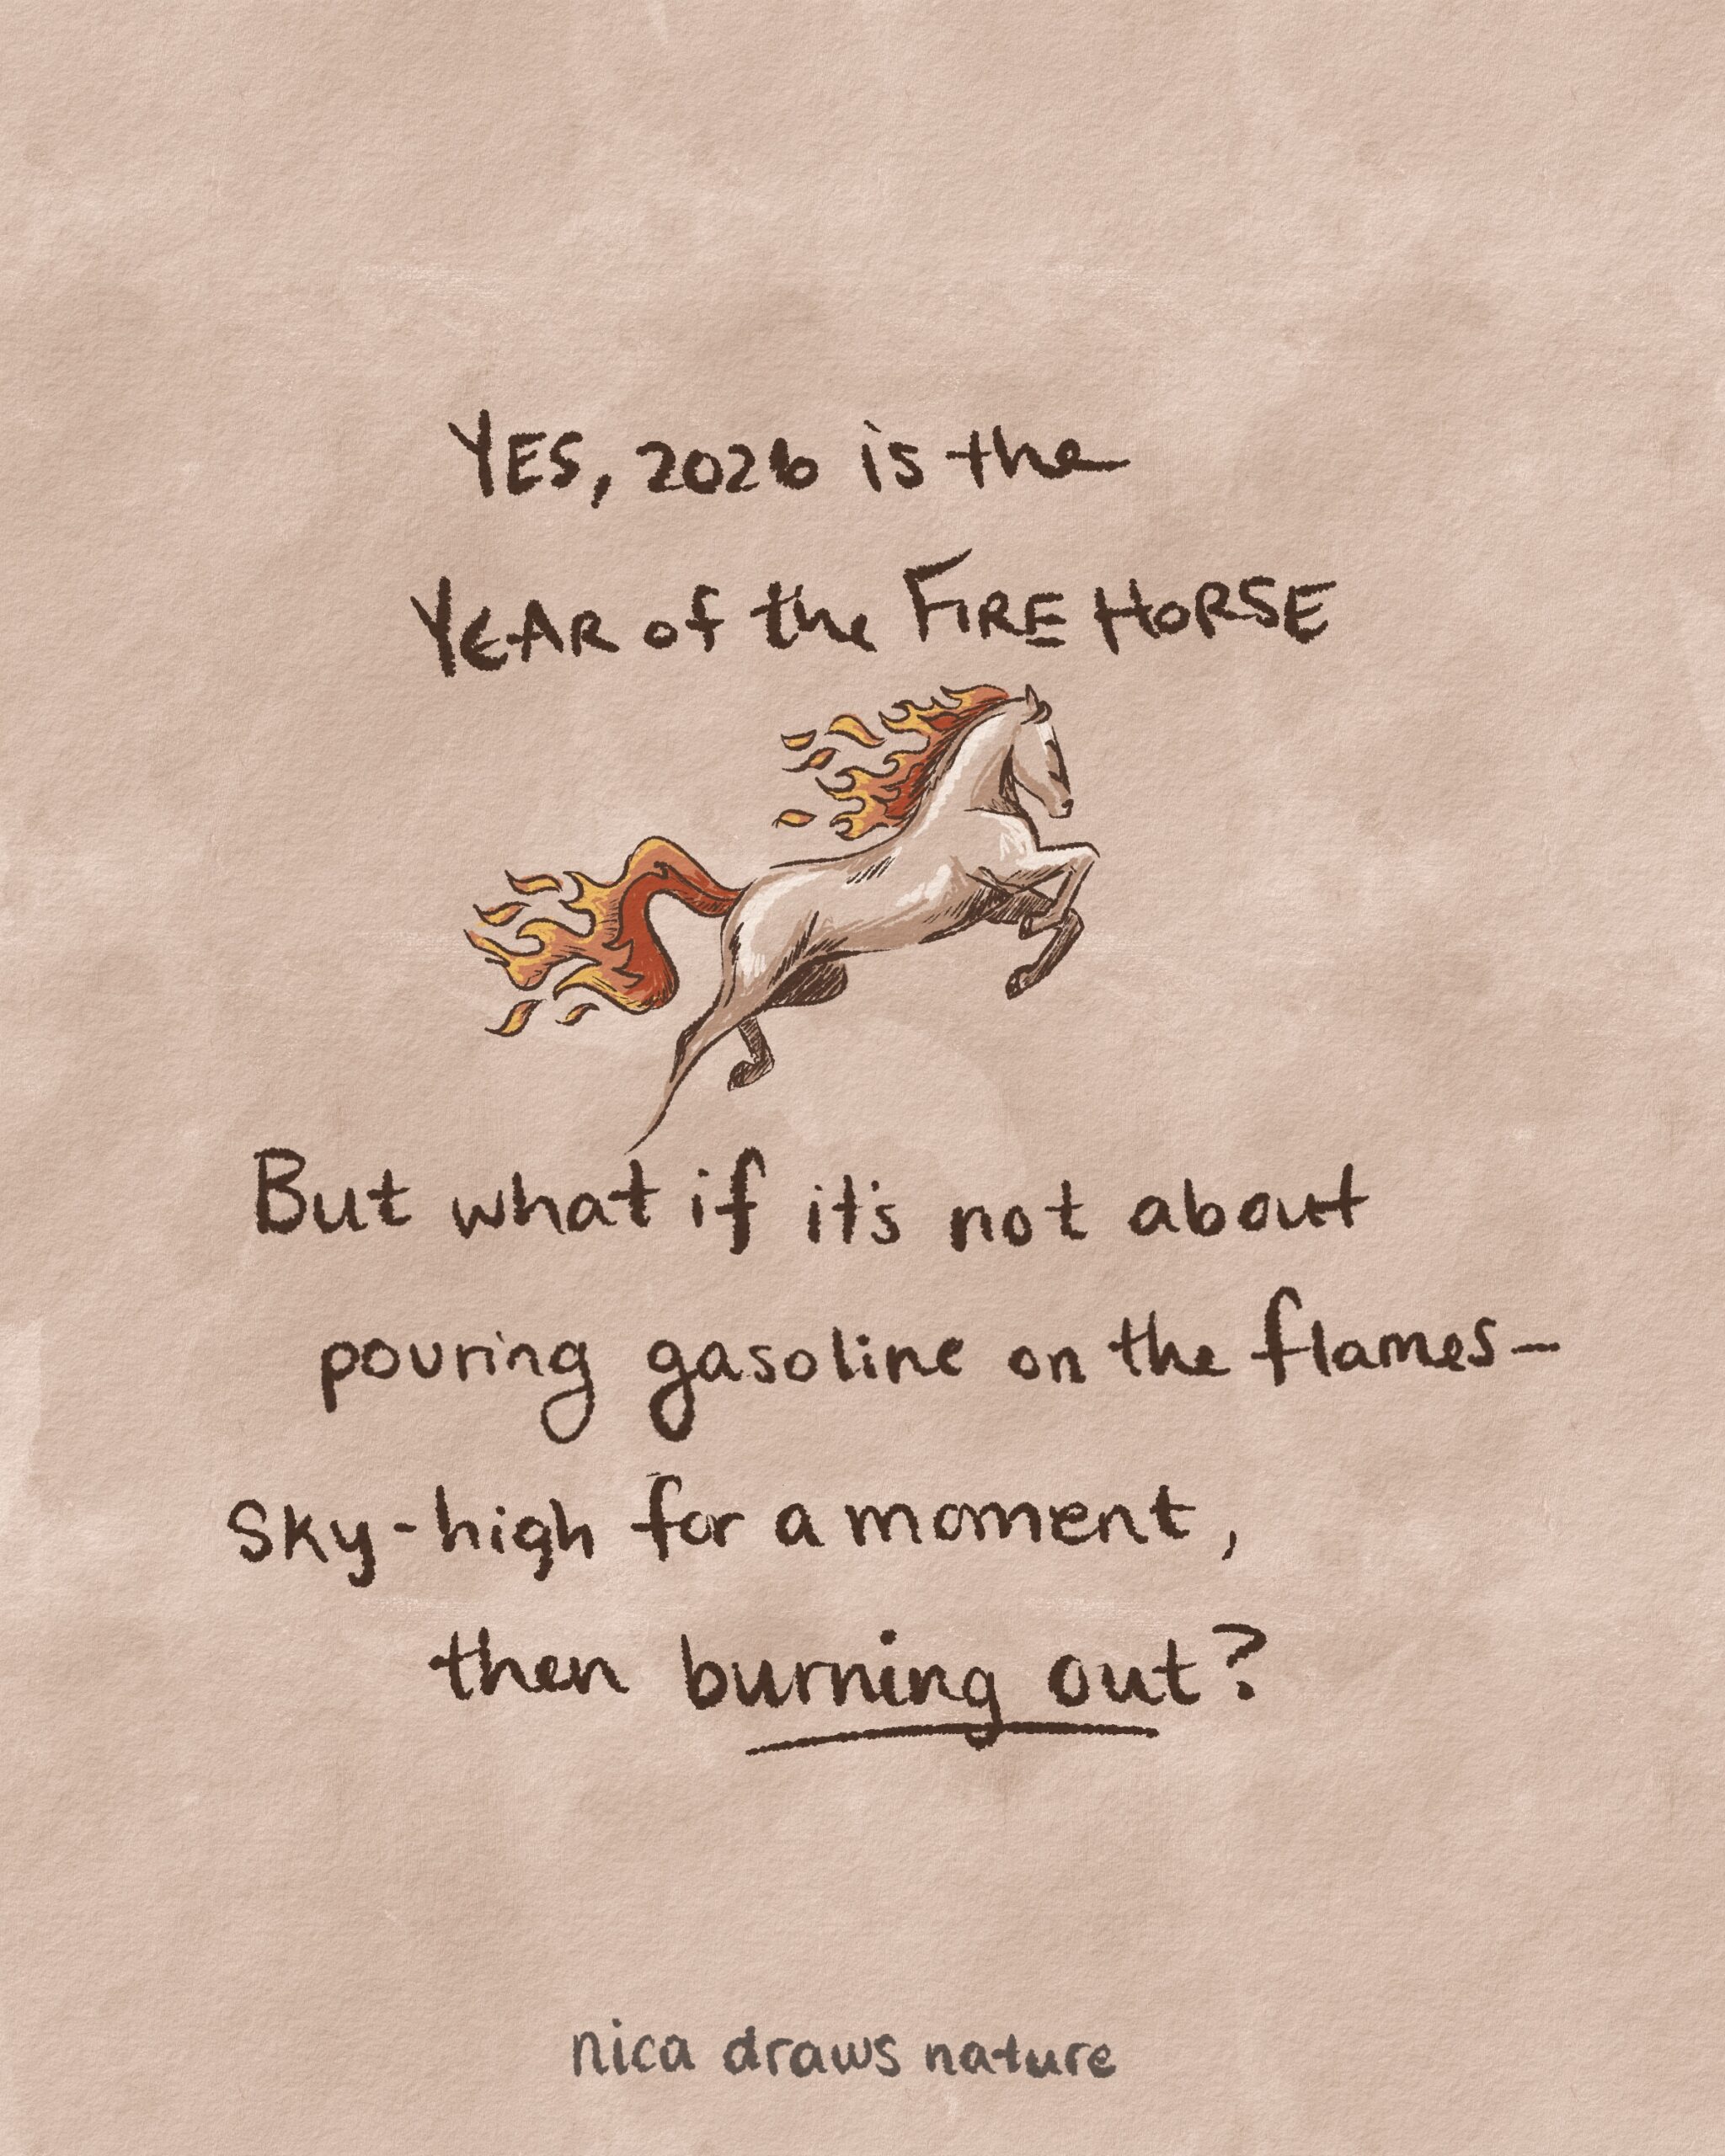 YES, 2026 is the
YEAR of the FIRE HORSE
But what if it's not about
pouring gasoline on the flames—
Sky-high for a moment,
then burning out?
nica draws nature